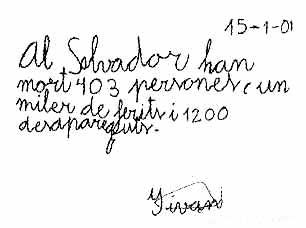 15-1-01
Al Salvador han
mort 403 persones, un
miler de ferits i 1200
desapareguts.
Yivan